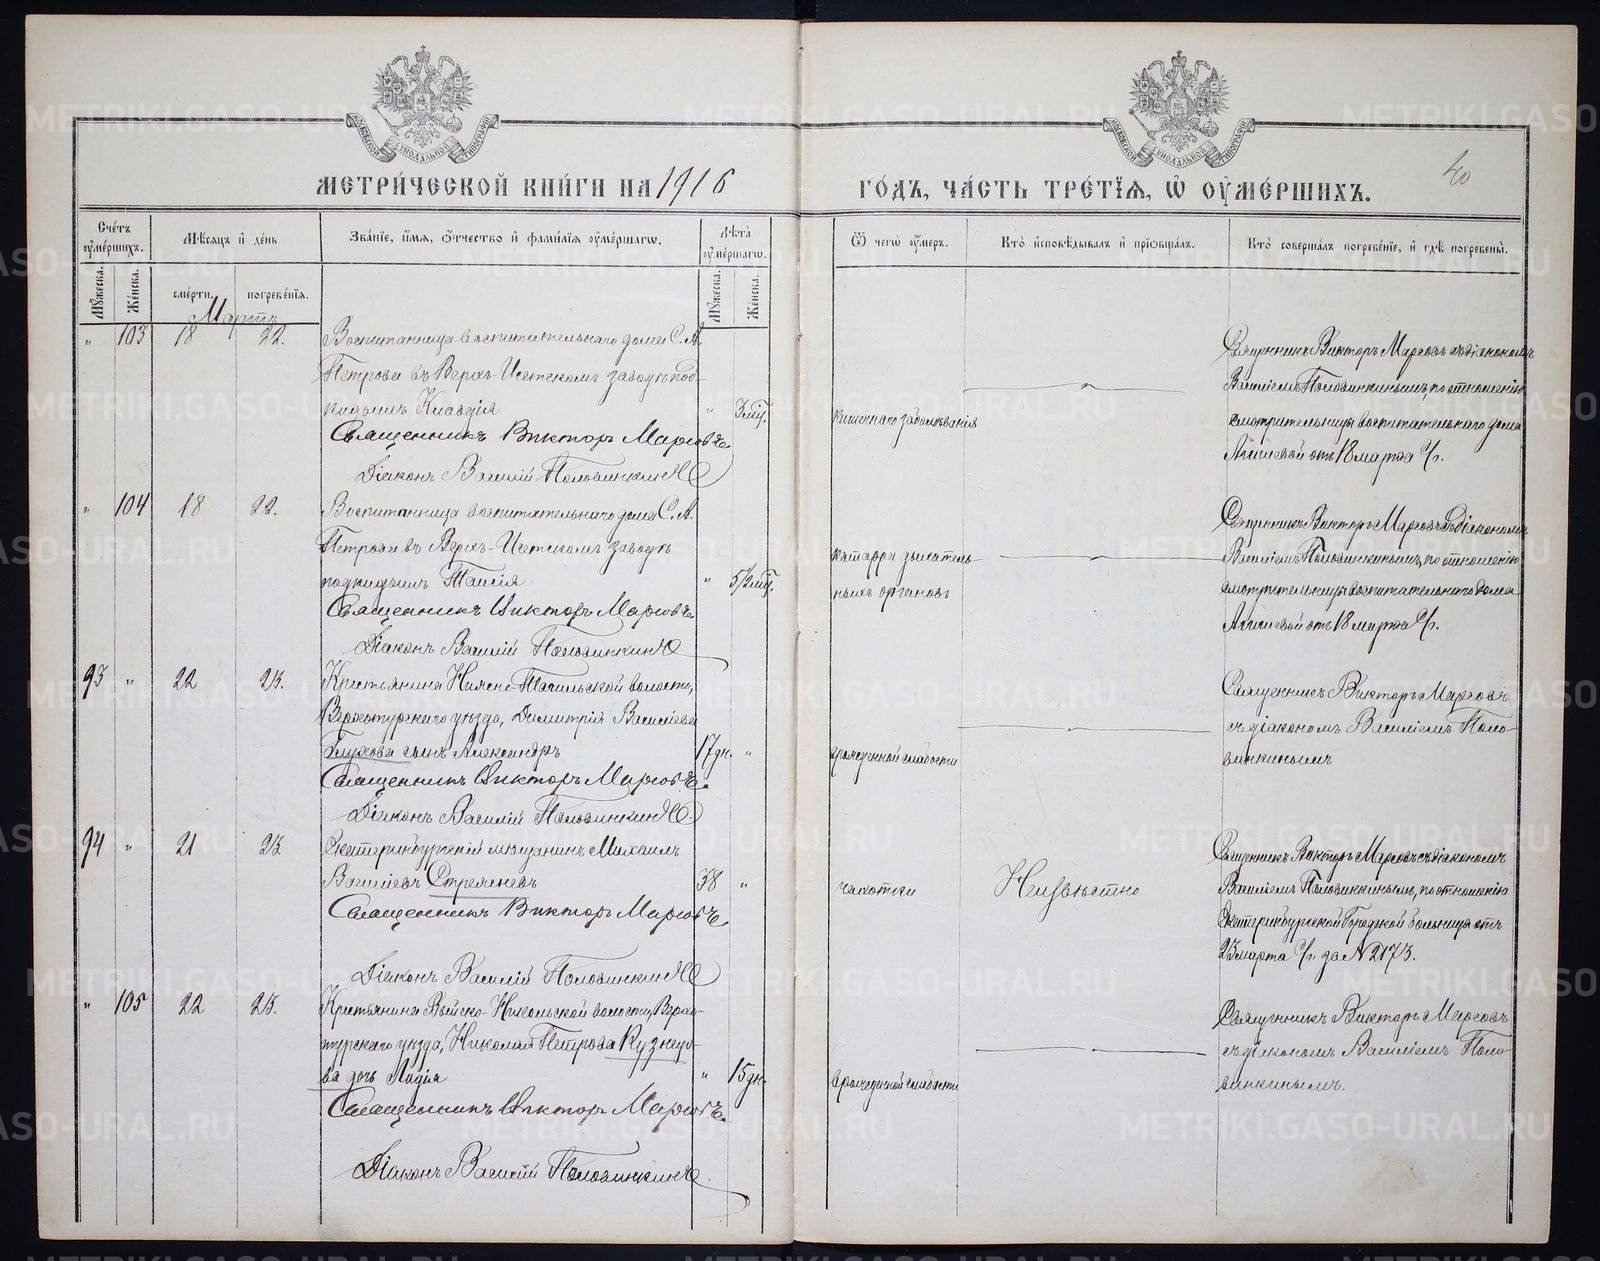 МЕТРИ́ЧЕСКОЙ КНИ́ГИ НА 1916
ГО́ДЪ, ЧА́СТЬ ТРЕ́ТЇѦ, Ѿ ОУМЕ́РШИХЪ.
40
Сче́тъ оумершихъ.
Мѣсяцъ и де́нь
Зва́нїе, и́мя, о́тчество и фами́лїя оуме́ршаго.
Лѣта оуме́ршаго.
Мужеска.
Же́нска.
сме́рти.
погребе́нїя.
Мужеска.
Же́нска.
Ѿ чего оу́меръ.
Кто́ исповѣдывалъ и прїобща́лъ.
Кто́ соверша́лъ погребе́нїе, и гдѣ погребены̀.
Мартъ
" 103 18 22.
Воспитанница воспитательнаго дома С. А.
Петрова въ Верхъ-Исетскомъ заводѣ под-
кидышъ Клавдія " 3 мѣс.
Священникъ Викторъ Марковъ
Діаконъ Василій Половинкинъ
кишечнаго заболѣванія
Священникъ Викторъ Марковъ съ діакономъ
Василіемъ Половинкинымъ, по отношенію
смотрительницы воспитательнаго дома
отъ 18 марта с/г.
" 104 18 22.
Воспитанница воспитательнаго дома С. А.
Петрова въ Верхъ-Исетскомъ заводѣ
подкидышъ Таисія " 5½ мѣс.
Священникъ Викторъ Марковъ
Діаконъ Василій Половинкинъ
катарра дыхатель-
ныхъ органовъ
Священникъ Викторъ Марковъ съ діакономъ
Василіемъ Половинкинымъ, по отношенію
смотрительницы воспитательнаго дома
отъ 18 марта с/г.
93 " 22 23.
Крестьянина Нижне-Тагильской волости,
Верхотурскаго уѣзда, Димитрія Васильева
Глухова сынъ Александръ 17 дн. "
Священникъ Викторъ Марковъ
Діаконъ Василій Половинкинъ
врожденной слабости
Священникъ Викторъ Марковъ
съ діакономъ Василіемъ Поло-
винкинымъ
94 " 21 23
Екатеринбургскій мѣщанинъ Михаилъ
Васильевъ Стреженевъ 38 "
Священникъ Викторъ Марковъ
Діаконъ Василій Половинкинъ
чахотки
Неизвѣстно
Священникъ Викторъ Марковъ съ діакономъ
Василіемъ Половинкинымъ, по отношенію
Екатеринбургской Городской больницы отъ
23 марта с/г за № 2173.
" 105 22 23.
Крестьянина Выйско-Никольской волости, Верхо-
турскаго уѣзда, Николая Петрова Кузнецо-
ва дочь Лидія " 15 дн.
Священникъ Викторъ Марковъ
Діаконъ Василій Половинкинъ
врожденной слабости
Священникъ Викторъ Марковъ
съ діакономъ Василіемъ Поло-
винкинымъ.
METRIKI.GASO-URAL.RU